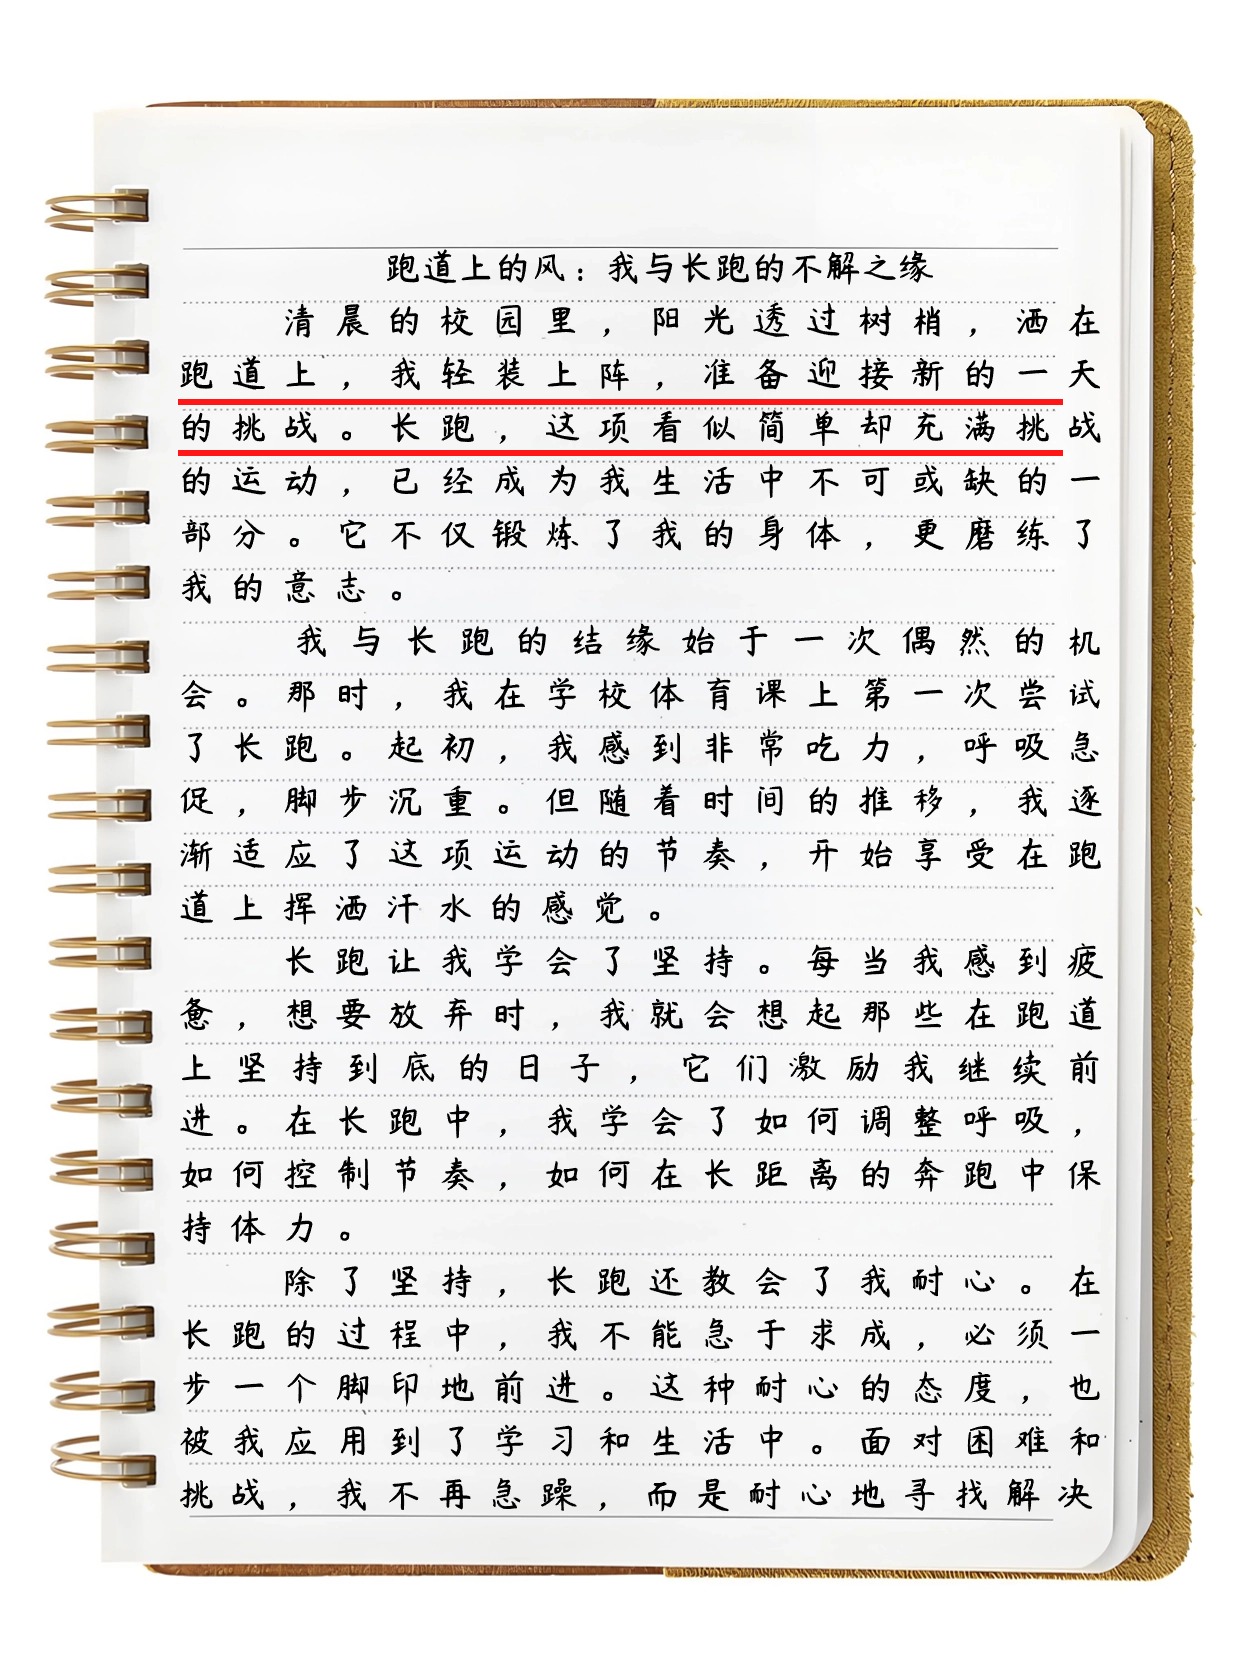 跑道上的风：我与长跑的不解之缘
清晨的校园里，阳光透过树梢，洒在
跑道上，我轻装上阵，准备迎接新的一天
的挑战。长跑，这项看似简单却充满挑战
的运动，已经成为我生活中不可或缺的一
部分。它不仅锻炼了我的身体，更磨练了
我的意志。
我与长跑的结缘始于一次偶然的机
会。那时，我在学校体育课上第一次尝试
了长跑。起初，我感到非常吃力，呼吸急
促，脚步沉重。但随着时间的推移，我逐
渐适应了这项运动的节奏，开始享受在跑
道上挥洒汗水的感觉。
长跑让我学会了坚持。每当我感到疲
惫，想要放弃时，我就会想起那些在跑道
上坚持到底的日子，它们激励我继续前
进。在长跑中，我学会了如何调整呼吸，
如何控制节奏，如何在长距离的奔跑中保
持体力。
除了坚持，长跑还教会了我耐心。在
长跑的过程中，我不能急于求成，必须一
步一个脚印地前进。这种耐心的态度，也
被我应用到了学习和生活中。面对困难和
挑战，我不再急躁，而是耐心地寻找解决